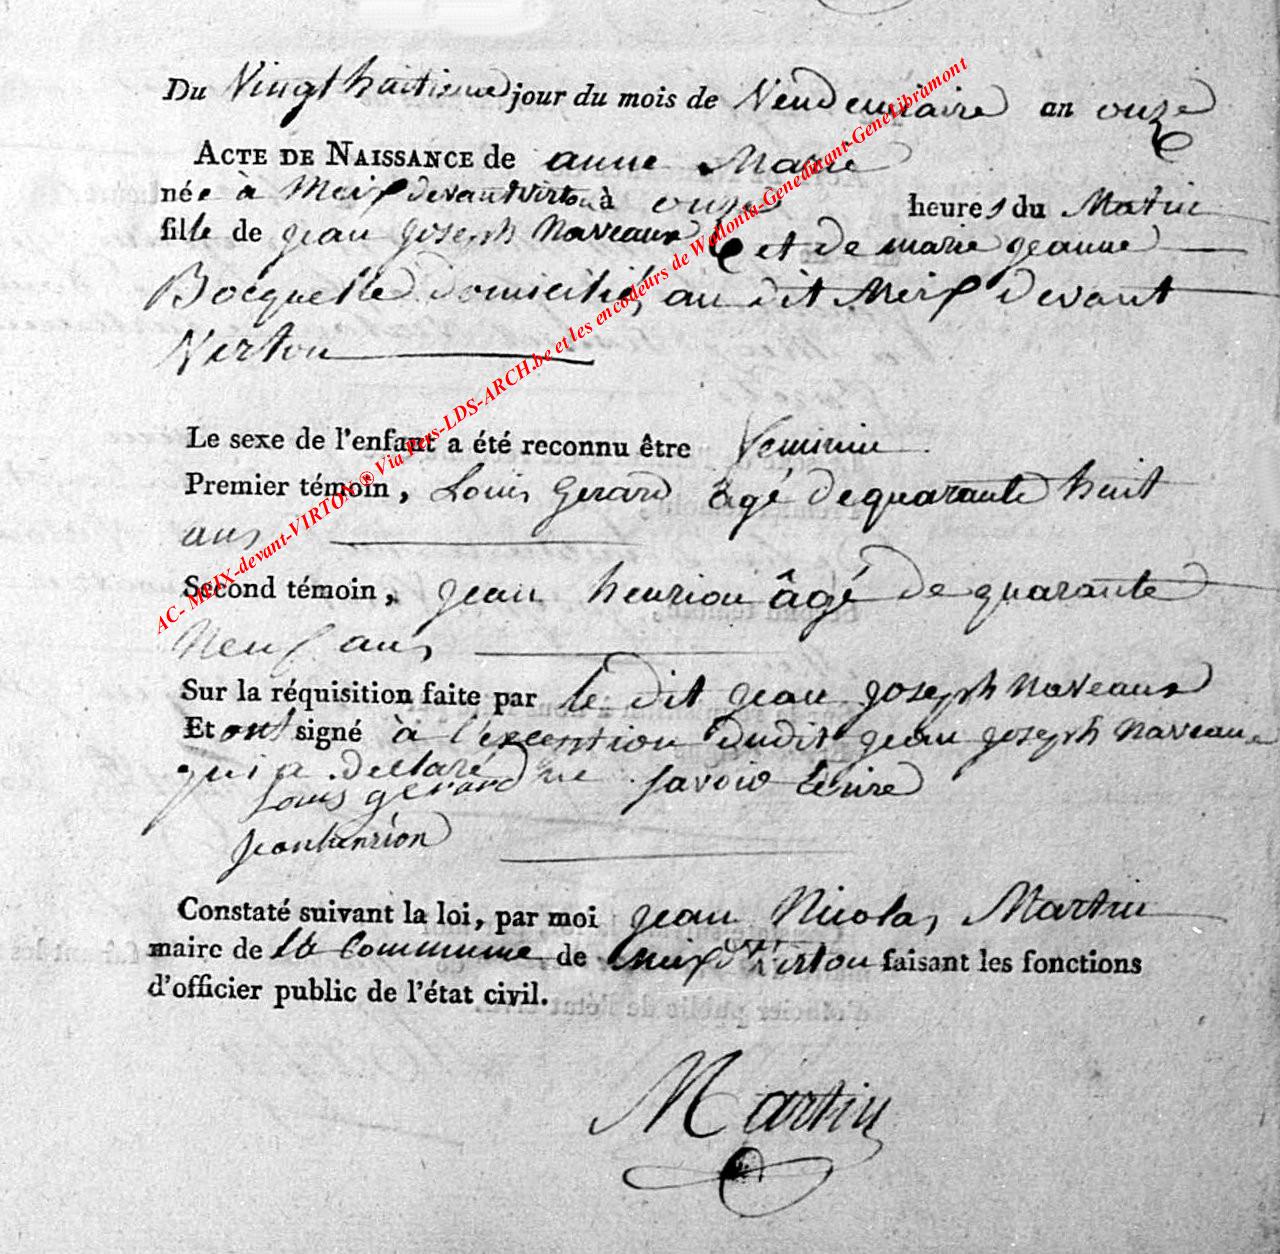 Du Vingt huitieme jour du mois de Vendemiaire an onze
ACTE DE NAISSANCE de anne Marie
née à Meix devant virton à onze heures du Matin
fille de jean joseph Naveaux et de marie jeanne
Bocquelle domiciliés au dit Meix devant
Virton
Le sexe de l'enfant a été reconnu être Feminin
Premier témoin, Louis Gerard âgé de quarante huit
ans
Second témoin, jean henrion âgé de quarante
Neuf ans
Sur la réquisition faite par le dit jean joseph Naveaux
Et ont signé à l'exception dudit jean joseph Naveaux
qui a declaré ne savoir Ecrire
Louis gerard
jean henrion
Constaté suivant la loi, par moi jean Nicolas Martin
maire de la Commune de Meix dt Virton faisant les fonctions
d'officier public de l'état civil.
Martin
AC- MEIX-devant-VIRTON ® Via Pers-LDS-ARCH.be et les encodeurs de Wallonia-Genedinant-GeneLibramont